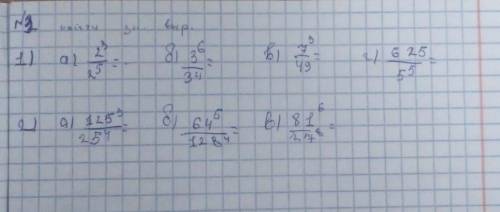 №2 найти зн. выр.
1) а) 2³/2⁵= б) 3⁶/3⁴= в) 7³/49= г) 625/5⁵=
2) а) 125³/25⁴= б) 64⁵/128⁴= в) 81⁶/27⁸=